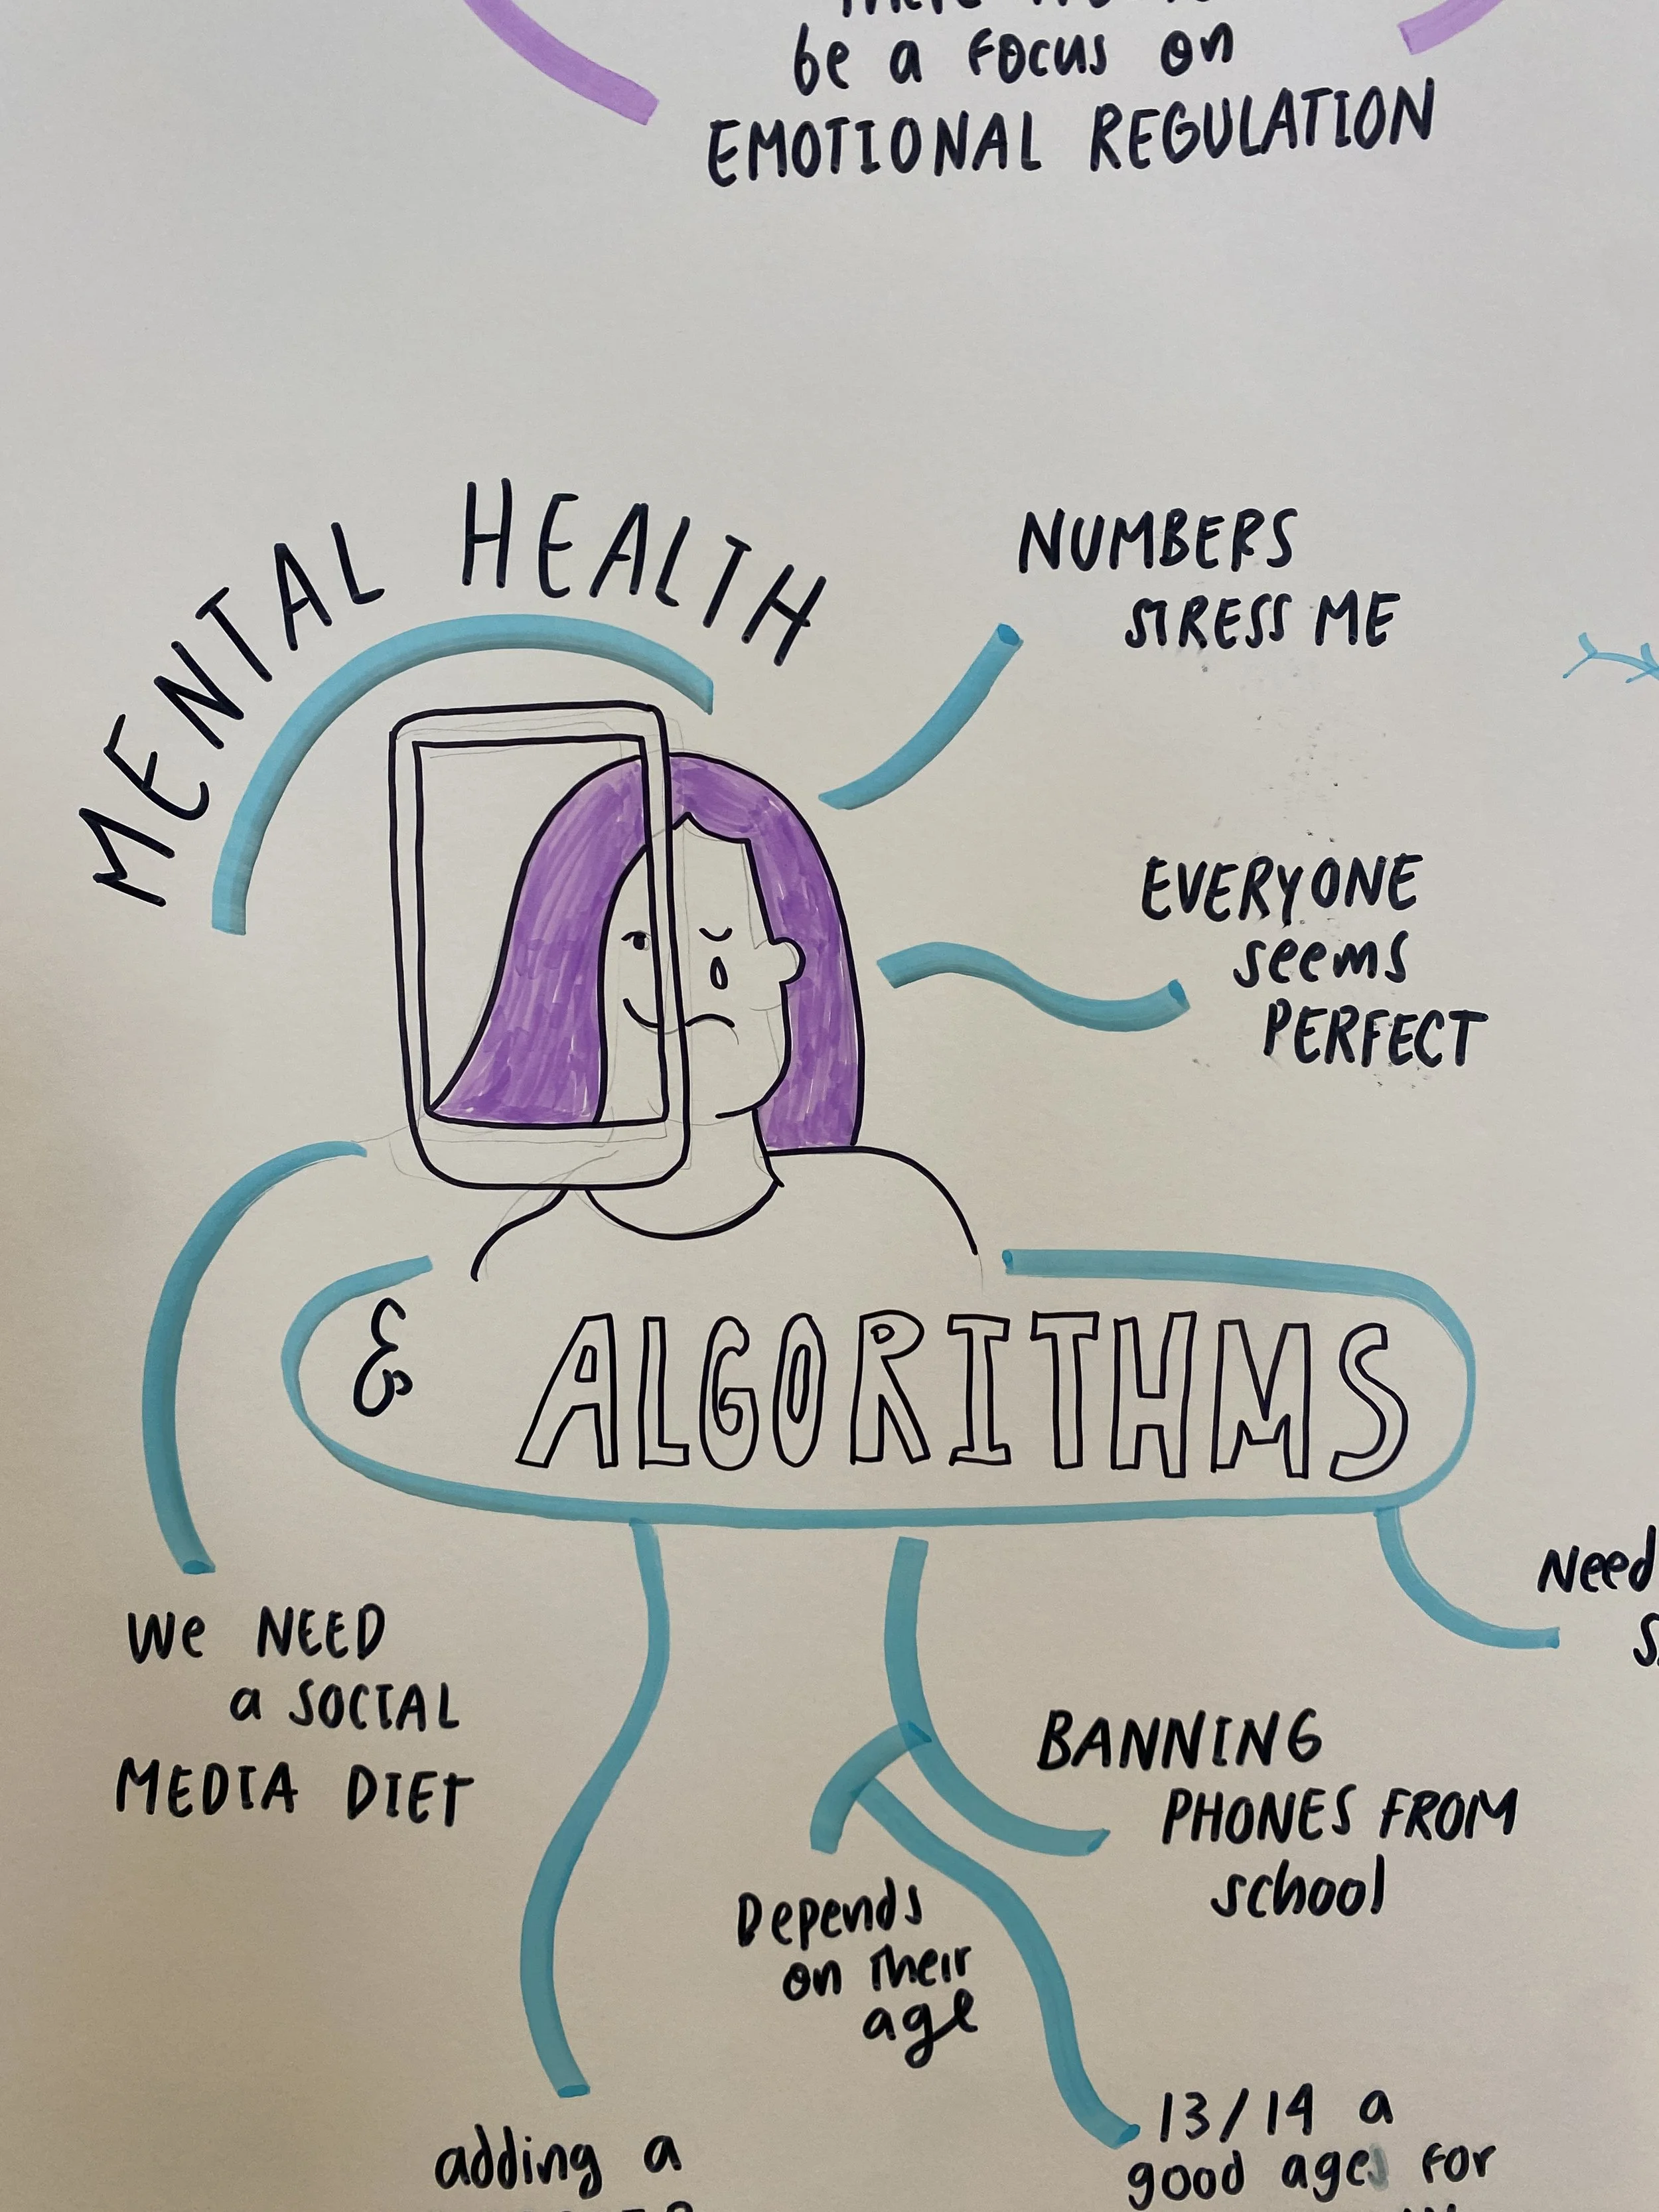 be a focus on
EMOTIONAL REGULATION
MENTAL HEALTH
NUMBERS
STRESS ME
EVERYONE
seems
PERFECT
& ALGORITHMS
Need
We NEED
a SOCIAL
MEDIA DIET
BANNING
PHONES FROM
school
Depends
on their
age
adding a
13/14 a
good age for